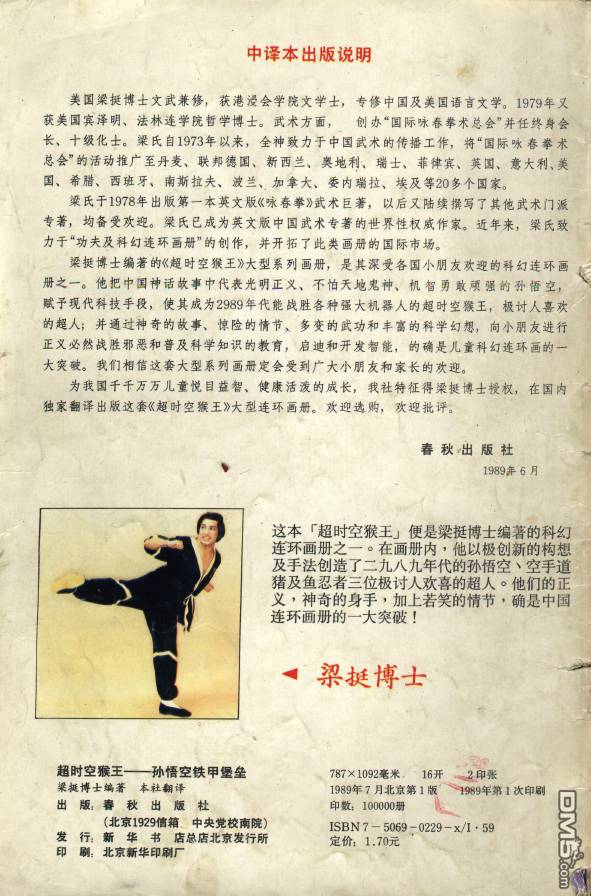 中译本出版说明
美国梁挺博士文武兼修，获港浸会学院文学士，专修中国及美国语言文学。1979年又
获美国宾泽明、法林连学院哲学博士。武术方面，创办“国际咏春拳术总会”并任终身会
长、十级化士。梁氏自1973年以来，全神致力于中国武术的传播工作，将“国际咏春拳术
总会”的活动推广至丹麦、联邦德国、新西兰、奥地利、瑞士、菲律宾、英国、意大利、美
国、希腊、西班牙、南斯拉夫、波兰、加拿大、委内瑞拉、埃及等20多个国家。
梁氏于1978年出版第一本英文版《咏春拳》武术巨著，以后又陆续撰写了其他武术门派
专著，均备受欢迎。梁氏已成为英文版中国武术专著的世界性权威作家。近年来，梁氏致
力于“功夫及科幻连环画册”的创作，并开拓了此类画册的国际市场。
梁挺博士编著的《超时空猴王》大型系列画册，是其深受各国小朋友欢迎的科幻连环画
册之一。他把中国神话故事中代表光明正义、不怕天地鬼神、机智勇敢顽强的孙悟空，
赋予现代科技手段，使其成为2989年代能战胜各种强大机器人的超时空猴王，极讨人喜欢
的超人；并通过神奇的故事、惊险的情节、多变的武功和丰富的科学幻想，向小朋友进行
正义必然战胜邪恶和普及科学知识的教育，启迪和开发智能，的确是儿童科幻连环画的一
大突破。我们相信这套大型系列画册定会受到广大小朋友和家长的欢迎。
为我国千千万万儿童悦目益智、健康活泼的成长，我社特征得梁挺博士授权，在国内
独家翻译出版这套《超时空猴王》大型连环画册。欢迎选购，欢迎批评。
春秋出版社
1989年6月
这本「超时空猴王」便是梁挺博士编著的科幻
连环画册之一。在画册内，他以极创新的构想
及手法创造了二九八九年代的孙悟空、空手道
猪及鱼忍者三位极讨人欢喜的超人。他们的正
义，神奇的身手，加上若笑的情节，确是中国
连环画册的一大突破！
梁挺博士
超时空猴王——孙悟空铁甲堡垒
梁挺博士编著 本社翻译
出版：春秋出版社
（北京1929信箱 中央党校南院）
发行：新华书店总店北京发行所
印刷：北京新华印刷厂
787×1092毫米 16开 2印张
1989年7月北京第1版 1989年第1次印刷
印数：100000册
ISBN7-5069-0229-x/I·59
定价：1.70元
DM5.com